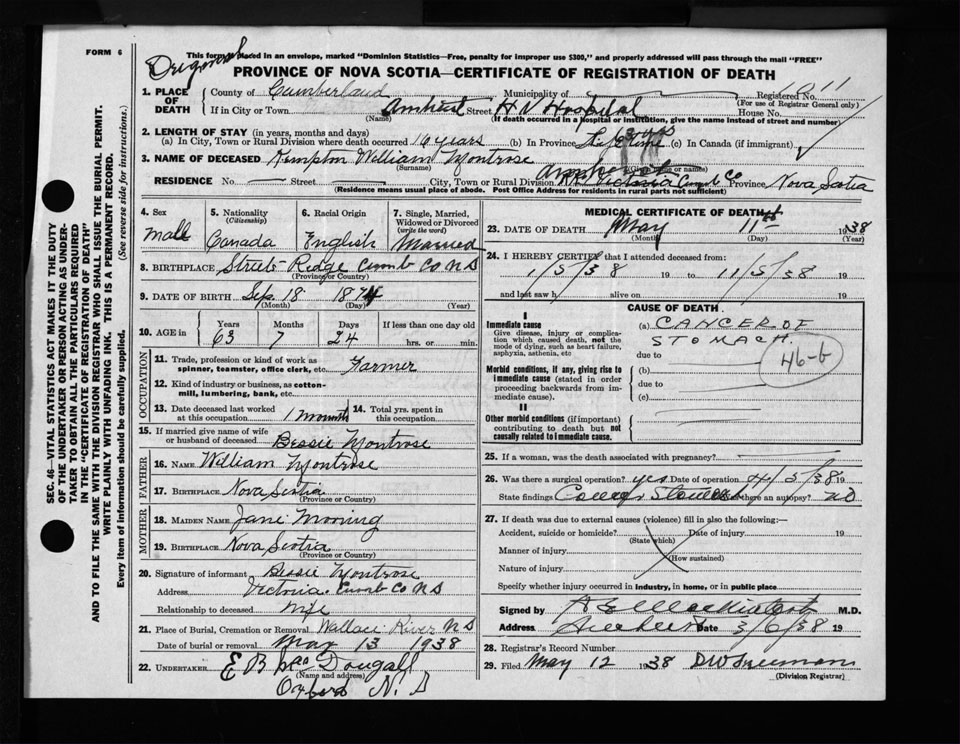 FORM 6
This form placed in an envelope, marked "Dominion Statistics—Free, penalty for improper use $300," and properly addressed will pass through the mail "FREE"
PROVINCE OF NOVA SCOTIA—CERTIFICATE OF REGISTRATION OF DEATH
1. PLACE OF DEATH
County of Cumberland Municipality of Registered No. 11
(For use of Registrar General only)
If in City or Town Amherst Street H V Hospital House No.
(Name) (If death occurred in a hospital or institution, give the name instead of street and number)
2. LENGTH OF STAY (in years, months and days)
(a) In City, Town or Rural Division where death occurred 16 years (b) In Province Lifetime (c) In Canada (if immigrant)
3. NAME OF DECEASED Kempton William Montrose
(Surname) (Given name or names)
RESIDENCE No. Street City, Town or Rural Division Victoria Cumb Co Province Nova Scotia
(Residence means usual place of abode. Post Office Address for residents in rural parts not sufficient)
4. Sex Male
5. Nationality (Citizenship) Canada
6. Racial Origin English
7. Single, Married, Widowed or Divorced (write the word) Married
8. BIRTHPLACE Streets Ridge Cumb Co N S
(Province or Country)
9. DATE OF BIRTH Sep. 18 1874
(Month) (Day) (Year)
10. AGE in Years 63 Months 7 Days 24 If less than one day old hrs. or min.
OCCUPATION
11. Trade, profession or kind of work as spinner, teamster, office clerk, etc. Farmer
12. Kind of industry or business, as cotton-mill, lumbering, bank, etc.
13. Date deceased last worked at this occupation 1 month 14. Total yrs. spent in this occupation
15. If married give name of wife or husband of deceased Bessie Montrose
FATHER
16. NAME William Montrose
17. BIRTHPLACE Nova Scotia
(Province or Country)
MOTHER
18. MAIDEN NAME Jane Mooring
19. BIRTHPLACE Nova Scotia
(Province or Country)
20. Signature of informant Bessie Montrose
Address Victoria Cumb Co N S
Relationship to deceased Wife
21. Place of Burial, Cremation or Removal Wallace River N S
Date of burial or removal May 13 1938
22. UNDERTAKER E B MacDougall
(Name and address)
Oxford N. S
MEDICAL CERTIFICATE OF DEATH
23. DATE OF DEATH May 11th 1938
(Month) (Day) (Year)
24. I HEREBY CERTIFY that I attended deceased from:
1/5/38 19 to 11/5/38 19
and last saw h alive on 19
CAUSE OF DEATH
I
Immediate cause
Give disease, injury or complication which caused death, not the mode of dying, such as heart failure, asphyxia, asthenia, etc
(a) CANCER OF
STOMACH.
due to
46-b
Morbid conditions, if any, giving rise to immediate cause (stated in order proceeding backwards from immediate cause).
(b)
due to
(c)
II
Other morbid conditions (if important) contributing to death but not causally related to immediate cause.
25. If a woman, was the death associated with pregnancy?
26. Was there a surgical operation? yes Date of operation 4/5/38 19
State findings Cancer Stomach Was there an autopsy? no
27. If death was due to external causes (violence) fill in also the following:—
Accident, suicide or homicide? Date of injury 19
(State which)
Manner of injury
(How sustained)
Nature of injury
Specify whether injury occurred in industry, in home, or in public place
Signed by M.D.
Address Amherst Date 3/6/38 19
28. Registrar's Record Number
29. Filed May 12 1938 D W Freeman
(Division Registrar)
SEC. 46—VITAL STATISTICS ACT MAKES IT THE DUTY
OF THE UNDERTAKER OR PERSON ACTING AS UNDER-
TAKER TO OBTAIN ALL THE PARTICULARS REQUIRED
IN THE "CERTIFICATE OF REGISTRATION OF DEATH"
AND TO FILE THE SAME WITH THE DIVISION REGISTRAR WHO SHALL ISSUE THE BURIAL PERMIT.
WRITE PLAINLY WITH UNFADING INK. THIS IS A PERMANENT RECORD.
Every item of information should be carefully supplied. (See reverse side for instructions.)